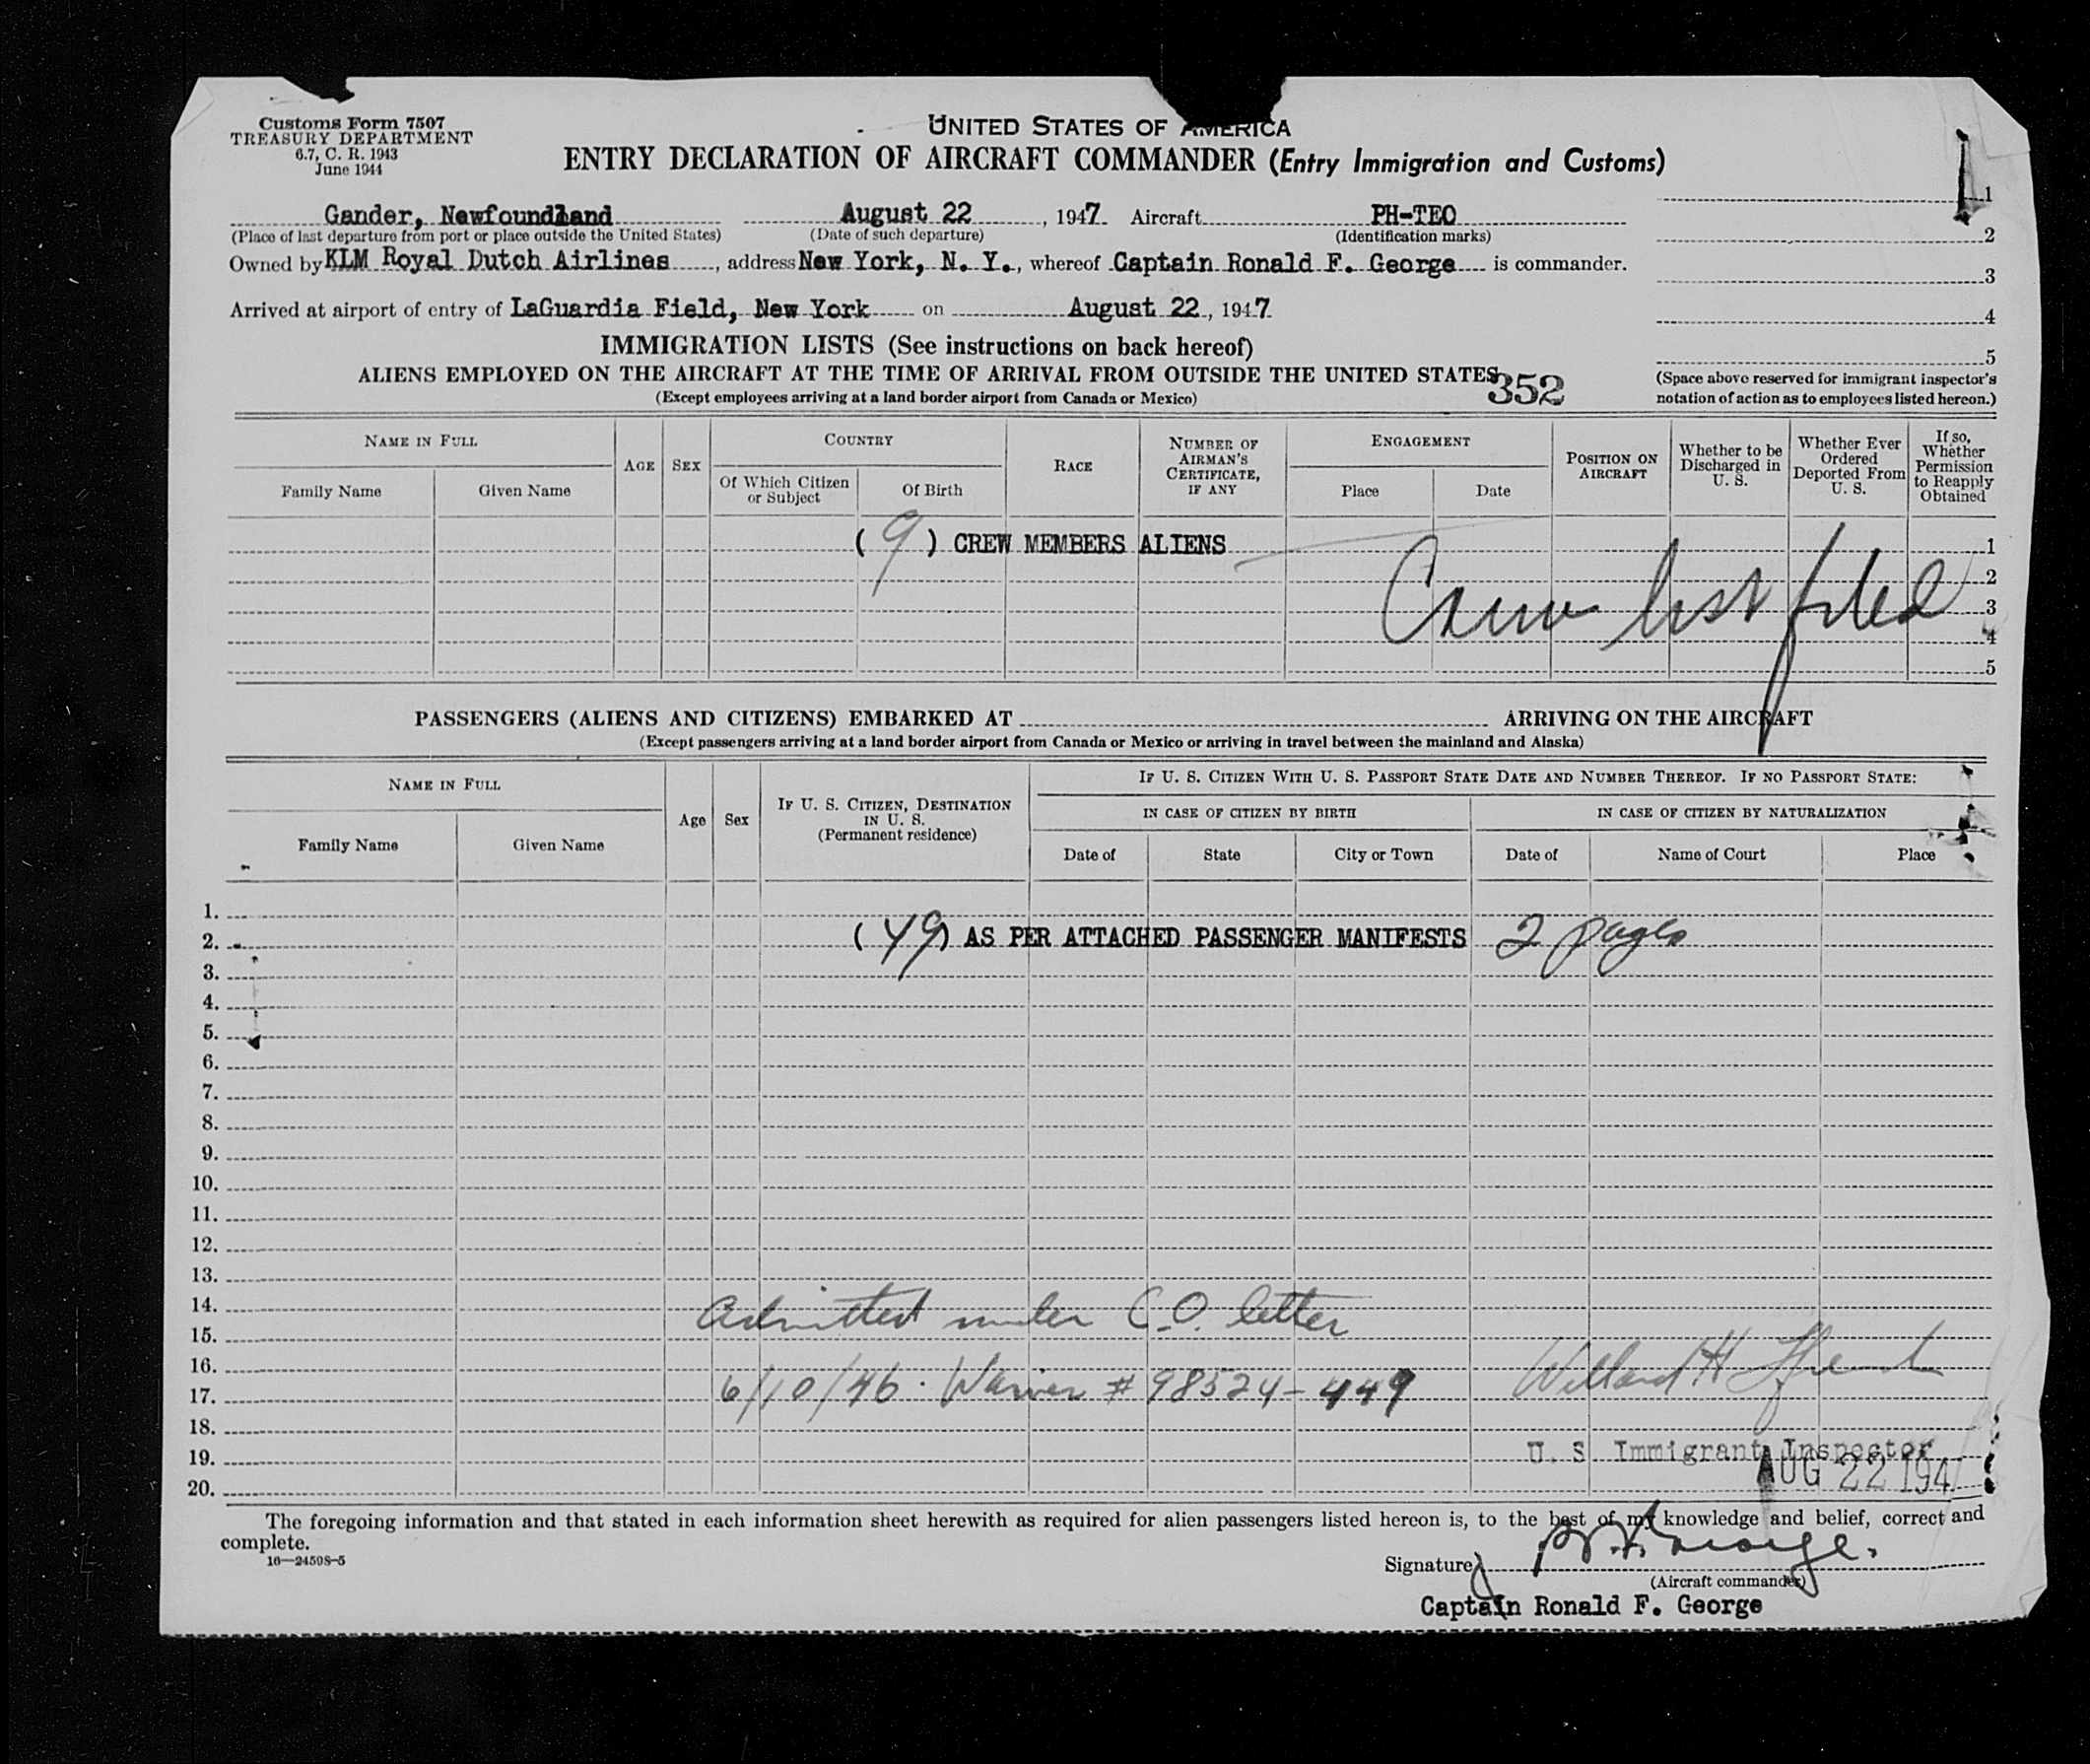 Customs Form 7507
TREASURY DEPARTMENT
6.7, C. R. 1943
June 1944
UNITED STATES OF AMERICA
ENTRY DECLARATION OF AIRCRAFT COMMANDER (Entry Immigration and Customs)
Gander, Newfoundland August 22, 1947 Aircraft PH-TEO
(Place of last departure from port or place outside the United States) (Date of such departure) (Identification marks)
Owned by KLM Royal Dutch Airlines, address New York, N. Y., whereof Captain Ronald F. George is commander.
Arrived at airport of entry of LaGuardia Field, New York on August 22, 1947
1
2
3
4
5
(Space above reserved for immigrant inspector's
notation of action as to employees listed hereon.)
IMMIGRATION LISTS (See instructions on back hereof)
ALIENS EMPLOYED ON THE AIRCRAFT AT THE TIME OF ARRIVAL FROM OUTSIDE THE UNITED STATES
352
(Except employees arriving at a land border airport from Canada or Mexico)
NAME IN FULL
Family Name
Given Name
AGE
SEX
COUNTRY
Of Which Citizen
or Subject
Of Birth
RACE
NUMBER OF
AIRMAN'S
CERTIFICATE,
IF ANY
ENGAGEMENT
Place
Date
POSITION ON
AIRCRAFT
Whether to be
Discharged in
U. S.
Whether Ever
Ordered
Deported From
U. S.
If so,
Whether
Permission
to Reapply
Obtained
( 9 ) CREW MEMBERS ALIENS
Crew list filed
1
2
3
4
5
PASSENGERS (ALIENS AND CITIZENS) EMBARKED AT ARRIVING ON THE AIRCRAFT
(Except passengers arriving at a land border airport from Canada or Mexico or arriving in travel between the mainland and Alaska)
NAME IN FULL
Family Name
Given Name
Age
Sex
IF U. S. CITIZEN, DESTINATION
IN U. S.
(Permanent residence)
IF U. S. CITIZEN WITH U. S. PASSPORT STATE DATE AND NUMBER THEREOF. IF NO PASSPORT STATE:
IN CASE OF CITIZEN BY BIRTH
Date of
State
City or Town
IN CASE OF CITIZEN BY NATURALIZATION
Date of
Name of Court
Place
1.
2. (49) AS PER ATTACHED PASSENGER MANIFESTS 2 pages
3.
4.
5.
6.
7.
8.
9.
10.
11.
12.
13.
14. Admitted under C.O. letter
15.
16. Willard H
17. 6/10/46. Waiver # 98524-449
18.
19. U. S. Immigrant Inspector
20. AUG 22 194
The foregoing information and that stated in each information sheet herewith as required for alien passengers listed hereon is, to the best of my knowledge and belief, correct and
complete.
16—24598-5
Signature R.F. George.
(Aircraft commander)
Captain Ronald F. George